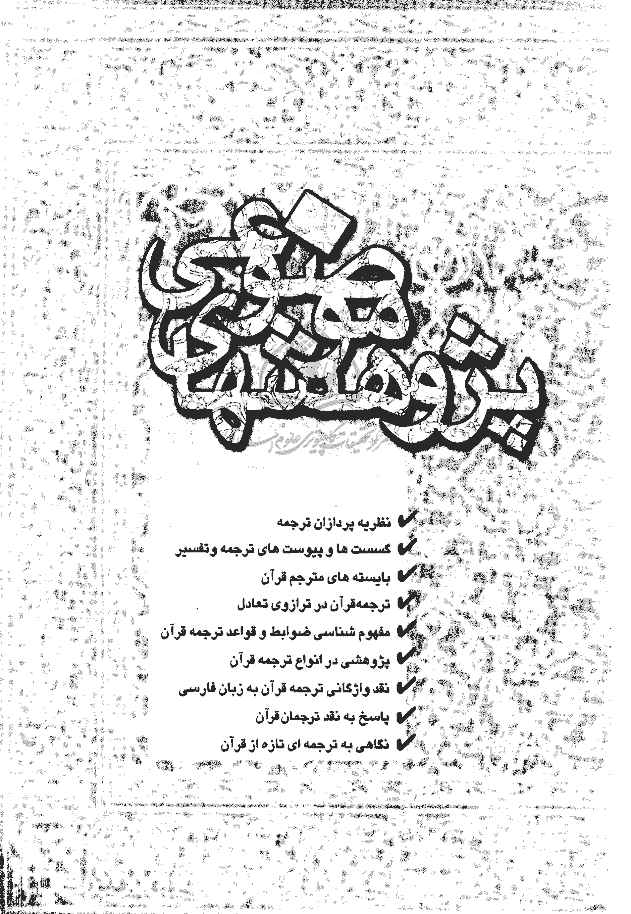 پژوهشهای
موضوعی
نظریه پردازان ترجمه
گسست ها و پیوست های ترجمه وتفسیر
بایسته های مترجم قرآن
ترجمه‌قرآن در ترازوی تعادل
مفهوم شناسی ضوابط و قواعد ترجمه قرآن
پژوهشی در انواع ترجمه قرآن
نقد واژگانی ترجمه قرآن به زبان فارسی
پاسخ به نقد ترجمان‌قرآن
نگاهی به ترجمه ای تازه از قرآن